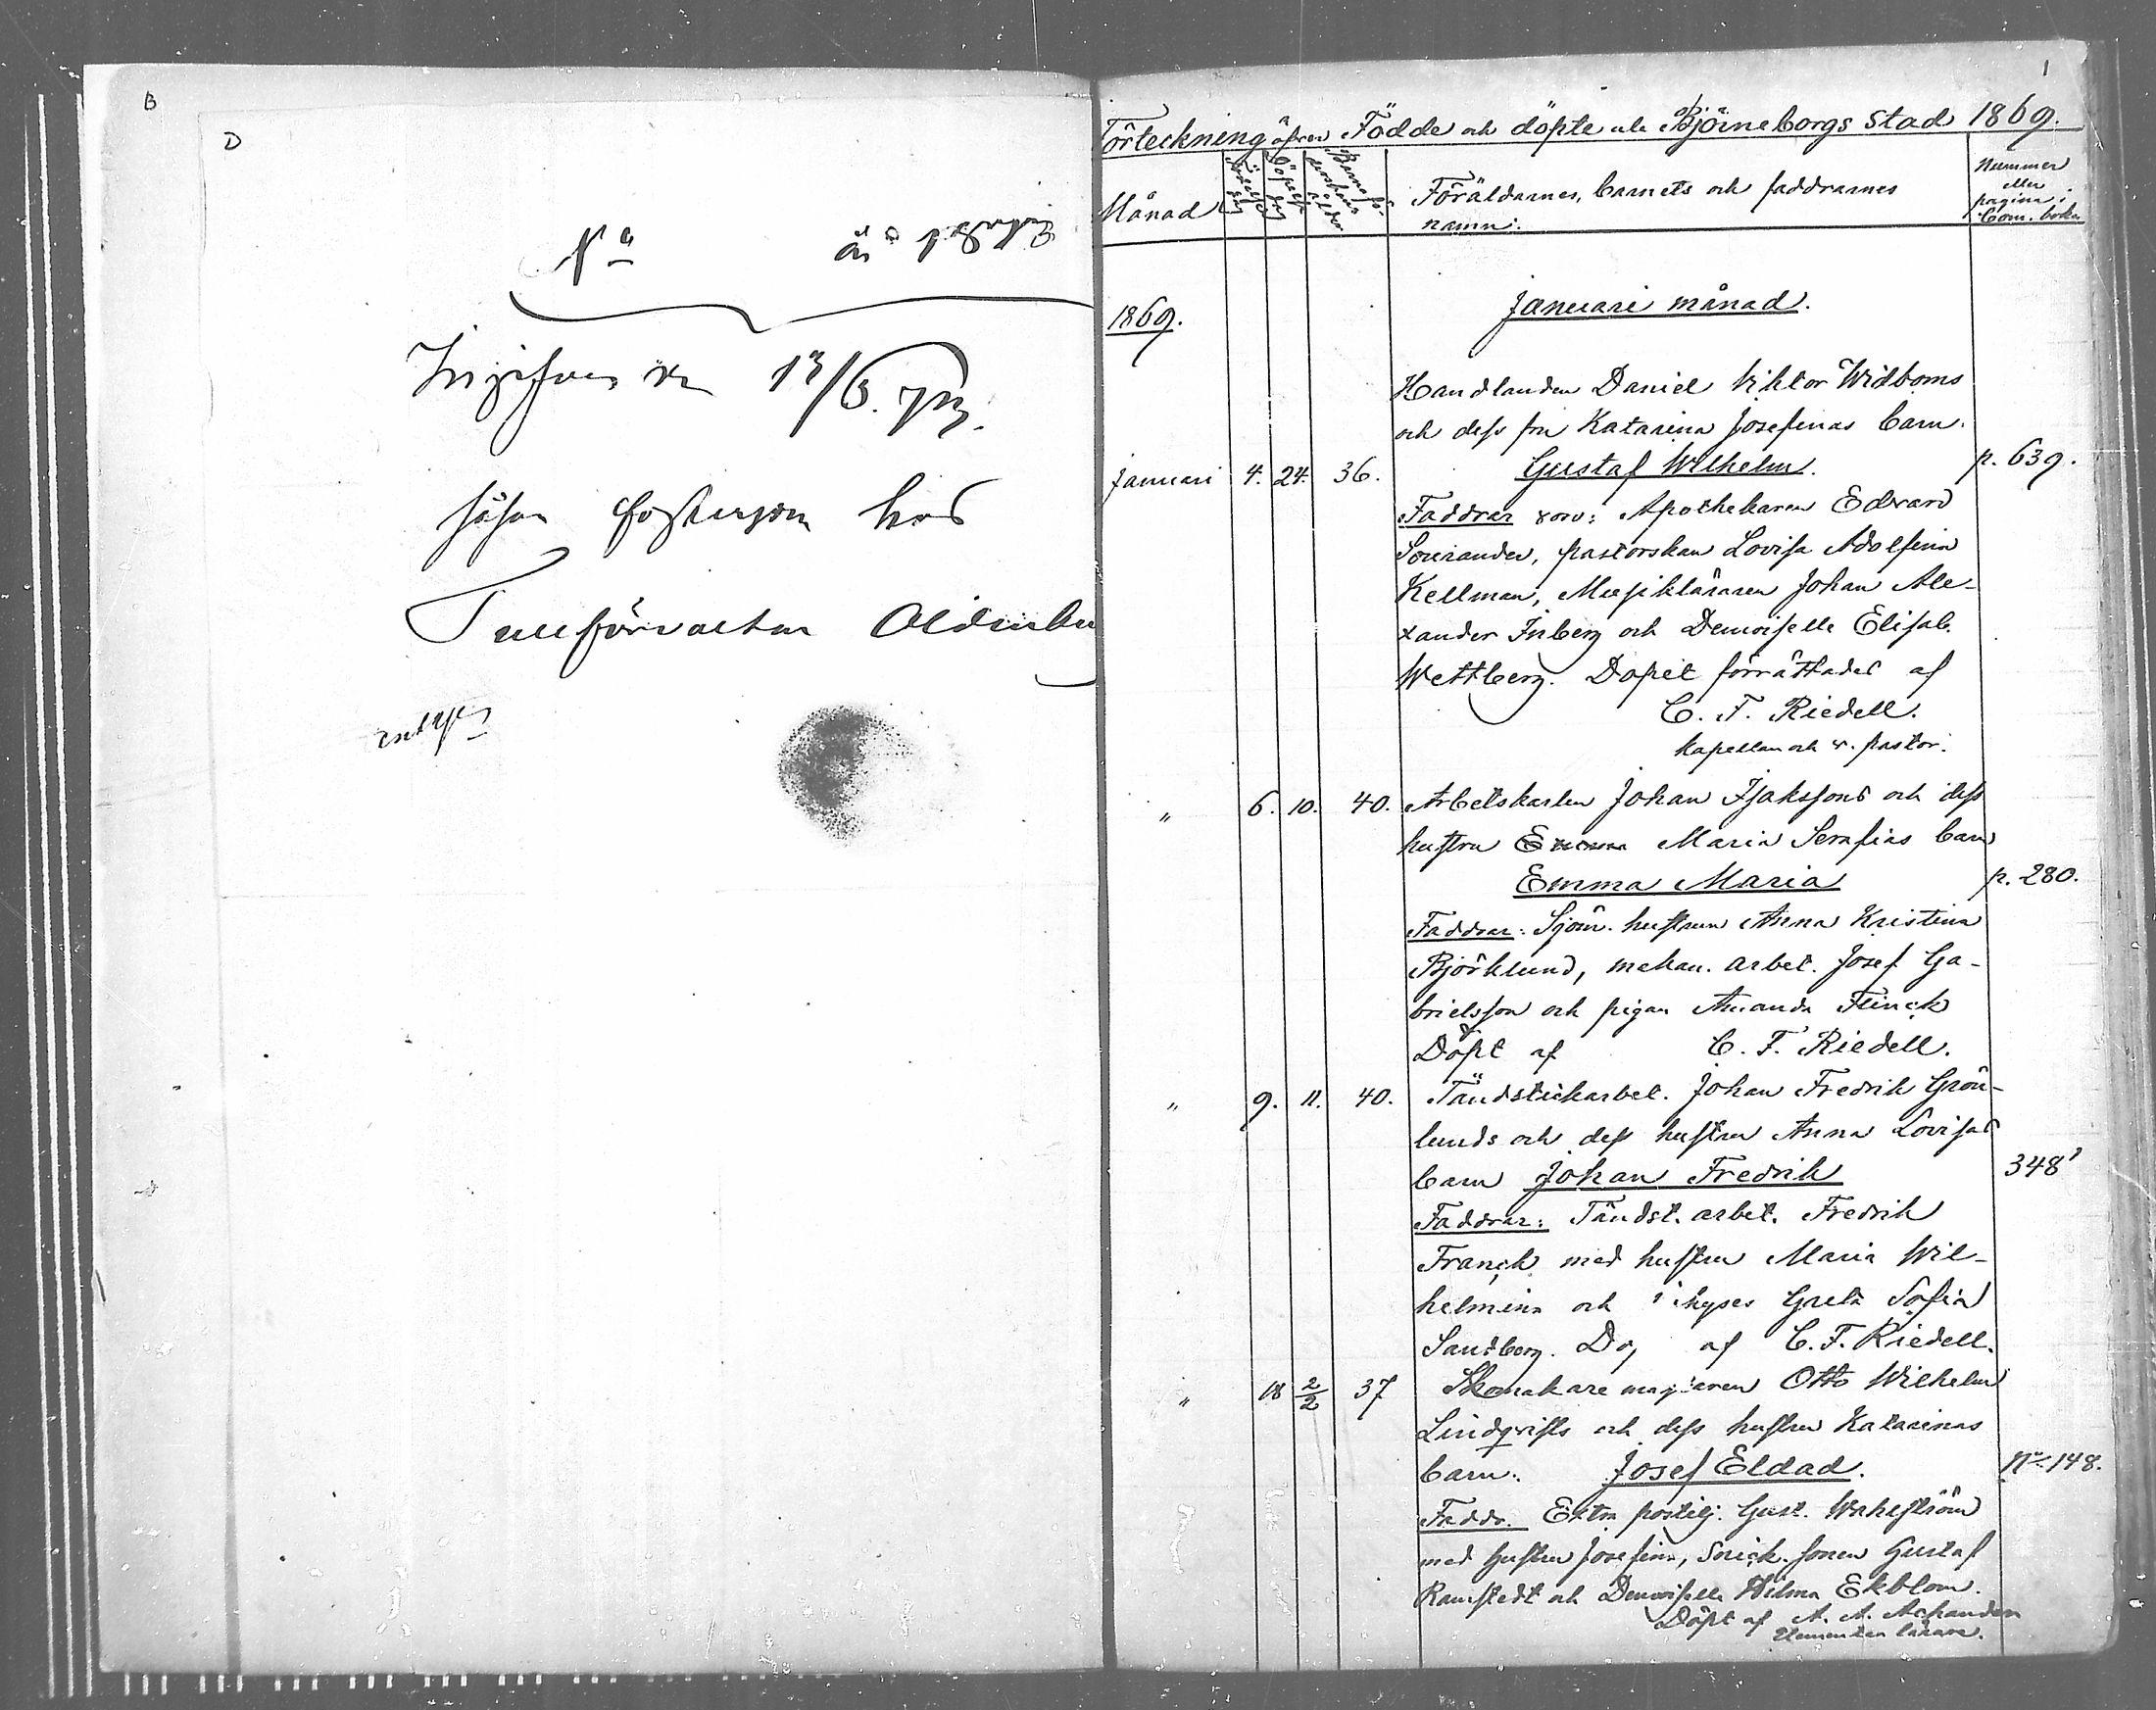 B
D
No är pagina
13/6.
hos
1
Förteckning öfver Födde och döpte uti Björneborgs Stad 1869.
Månad
Födelse dag
Döpelse dag
Barnaföderskans ålder
Föräldarnes, barnets och faddrarnes
namn:
Nummer
eller
pagina i
Com. boken
1869.
Januari månad.
Handlanden Daniel Viktor Widboms
och dess fru Katarina Josefinas barn.
Januari 4. 24. 36. Gustaf Wilhelm. p. 639.
Faddrar voro: Apothekaren Edvard
pastorskan Lovisa Adolfina
Kellman, Musikläraren Johan Ale-
xander Inberg och Demoiselle Elisab.
Wettberg. Dopet förrättades af
C. F. Riedell.
Kapellan och v. pastor.
" 6. 10. 40. Arbetskarlen Johan Isakssons och dess
hustru Maria Serafias barn
Emma Maria p. 280.
Faddrar: Sjöm. hustrun Anna Kristina
Björklund, mekan. arbet. Josef Ga-
brielsson och pigan Amanda Flinck
Döpt af C. F. Riedell.
" 9. 11. 40. Tändstickarbet. Johan Fredrik Grön-
lunds och dess hustru Anna Lovisas
barn Johan Fredrik 348
Faddrar: Tändst. arbet. Fredrik
Franck med hustru Maria Wil-
helmina och ihyses Greta Sofia
Sandberg. Do, af C. F. Riedell.
" 18 2/2 37 Skomakare mästaren Otto Wilhelm
Lindqvists och dess hustru Katarinas
barn: Josef Eldad. No 148.
Faddr. Extra postilj. Gust. Wahlström
med hustru Josefina, Snick. sonen Gustaf
Ramstedt och Demoiselle Hilma Ekblom.
Döpt af A. A. Achander
Elementar lärare.